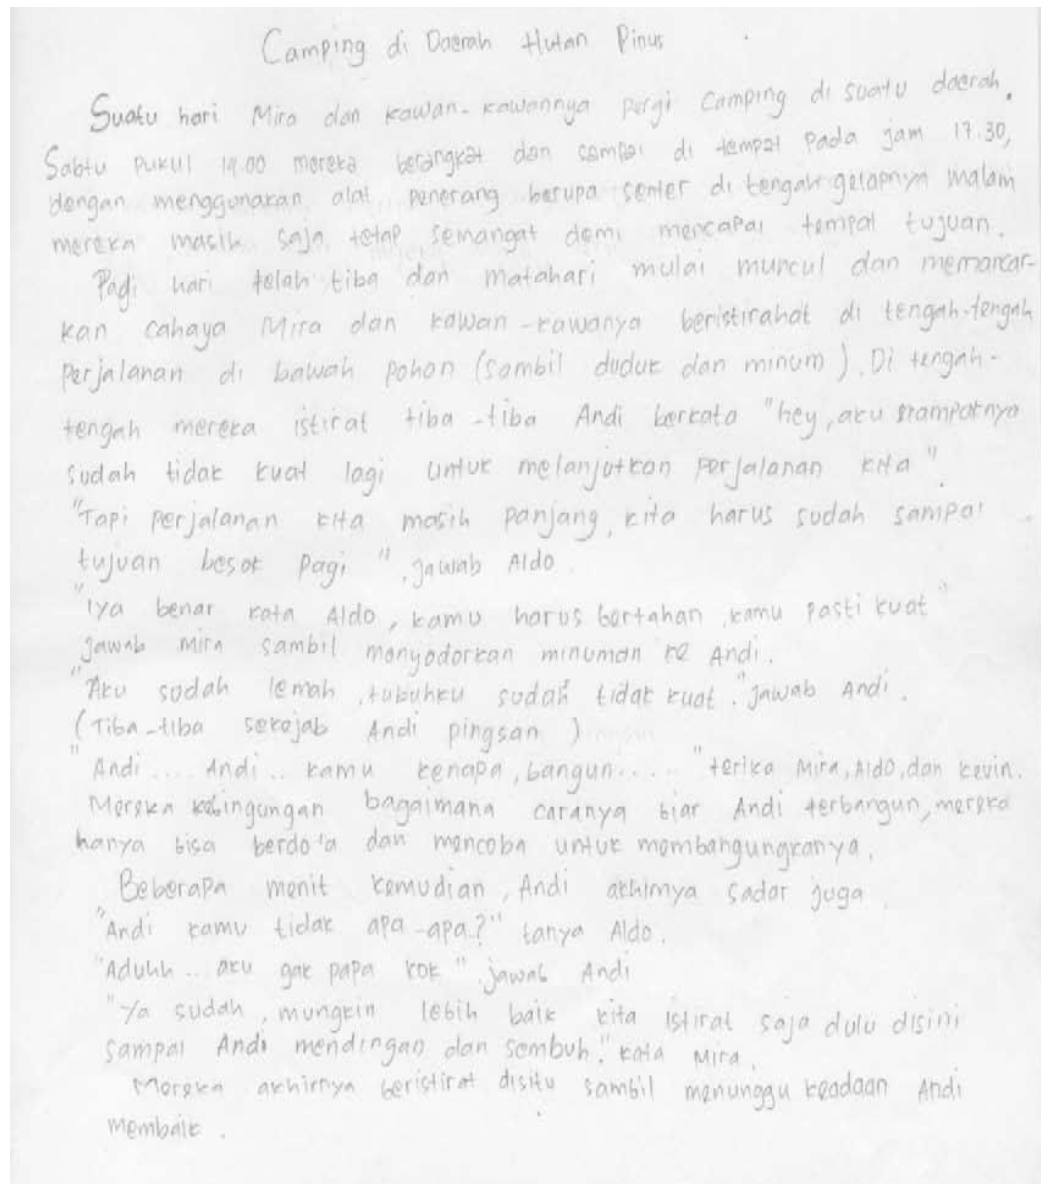 Camping di Daerah Hutan Pinus
Suatu hari Mira dan kawan-kawannya pergi Camping di suatu daerah.
Sabtu pukul 14.00 mereka berangkat dan sampai di tempat pada jam 17.30,
dengan menggunakan alat penerang berupa senter di tengah gelapnya malam
mereka masih saja tetap semangat demi mencapai tempat tujuan.
Pagi hari telah tiba dan matahari mulai muncul dan memancar-
kan cahaya Mira dan kawan-kawanya beristirahat di tengah-tengah
perjalanan di bawah pohon (sambil duduk dan minum). Di tengah-
tengah mereka istirat tiba-tiba Andi berkata "hey, aku nampaknya
sudah tidak kuat lagi untuk melanjutkan perjalanan kita".
"Tapi perjalanan kita masih panjang, kita harus sudah sampai
tujuan besok pagi", jawab Aldo.
"Iya benar kata Aldo, kamu harus bertahan, kamu pasti kuat"
jawab mira sambil menyodorkan minuman ke Andi.
"Aku sudah lemah, tubuhku sudah tidak kuat." jawab Andi.
(Tiba-tiba sekejab Andi pingsan)
"Andi.... Andi.. kamu kenapa, bangun....." terika Mira, Aldo, dan kevin.
Mereka kebingungan bagaimana caranya biar Andi terbangun, mereka
hanya bisa berdo'a dan mencoba untuk membangungkanya.
Beberapa menit kemudian, Andi akhirnya sadar juga.
"Andi kamu tidak apa-apa?" tanya Aldo.
"Aduhh.. aku gak papa kok" jawab Andi
"Ya sudah, mungkin lebih baik kita istirat saja dulu disini
sampai Andi mendingan dan sembuh." kata Mira.
Mereka akhirnya beristirat disitu sambil menunggu keadaan Andi
membaik.